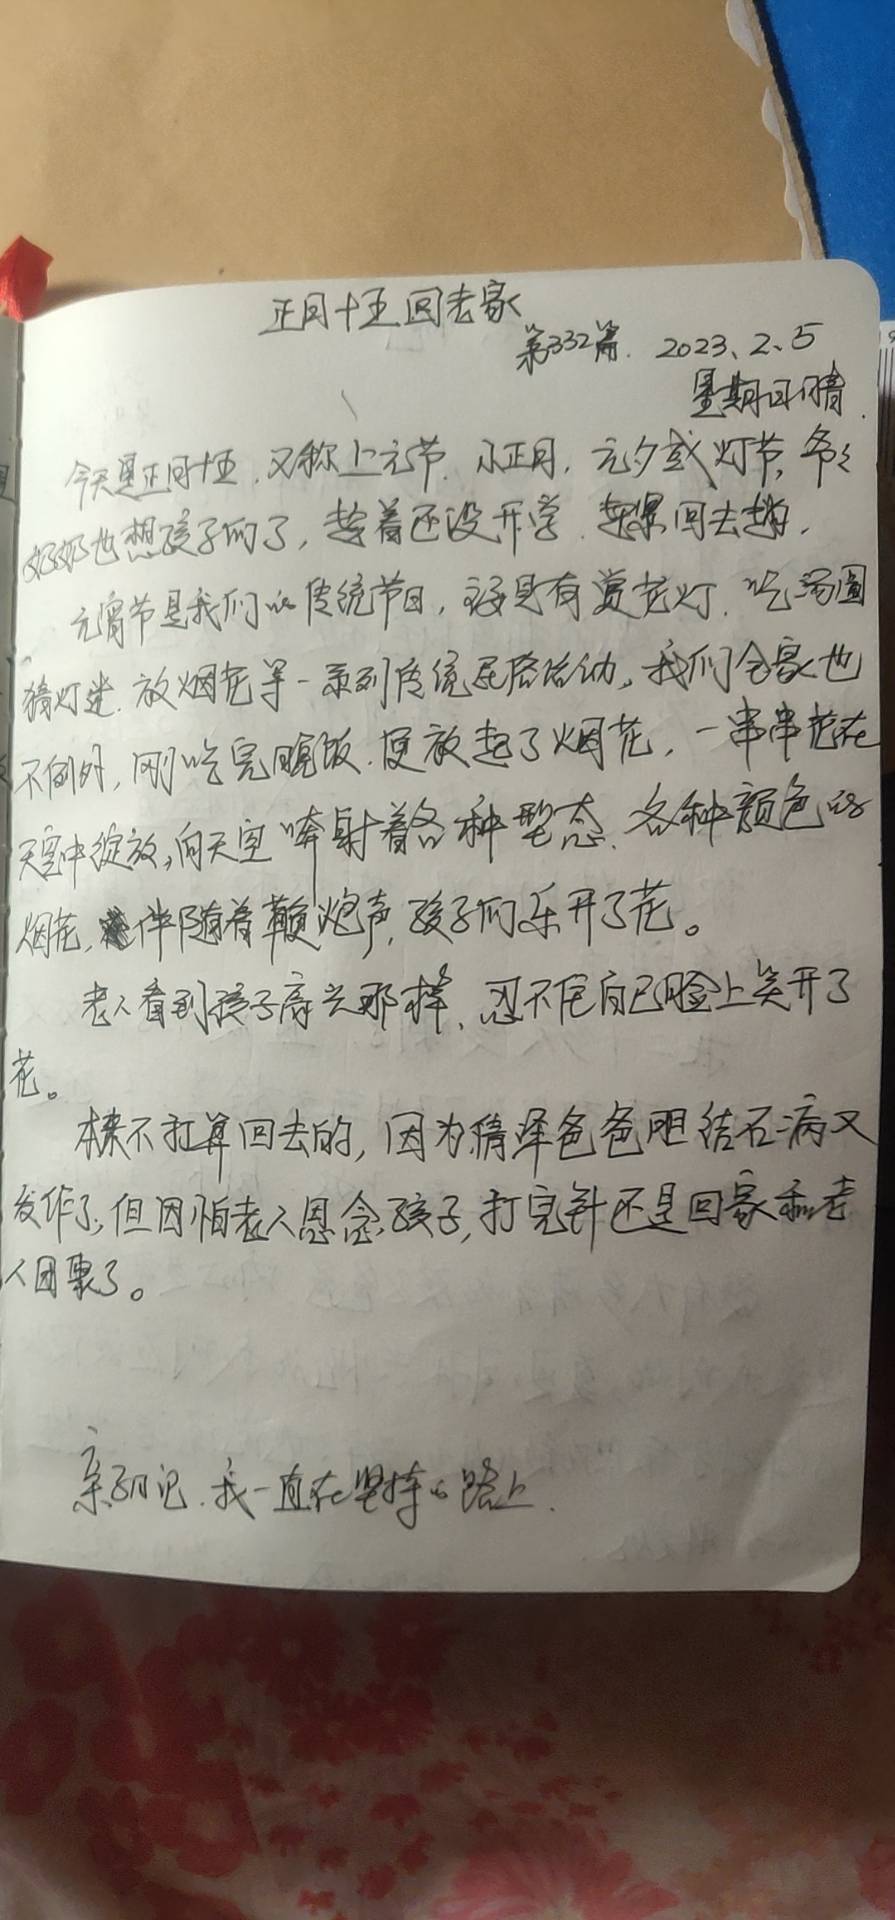 正月十五回老家
第332篇. 2023、2、5
星期日 晴.
今天是正月十五,又称上元节、小正月、元夕或灯节,爷爷
奶奶也想孩子们了,趁着还没开学、赶紧回去趟。
元宵节是我们的传统节日,该具有赏花灯、吃汤圆
猜灯谜、放烟花等一系列传统民俗活动。我们全家也
不例外,刚吃完晚饭、便放起了烟花,一串串花在
天空中绽放,向天空喷射着各种型态、各种颜色的
烟花,伴随着鞭炮声,孩子们乐开了花。
老人看到孩子高兴那样、忍不住自己脸上笑开了
花。
本来不打算回去的,因为精泽爸爸胆结石病又
发作了,但因怕老人思念孩子,打完针还是回家和老
人团聚了。
亲子日记、我一直在坚持的路上.